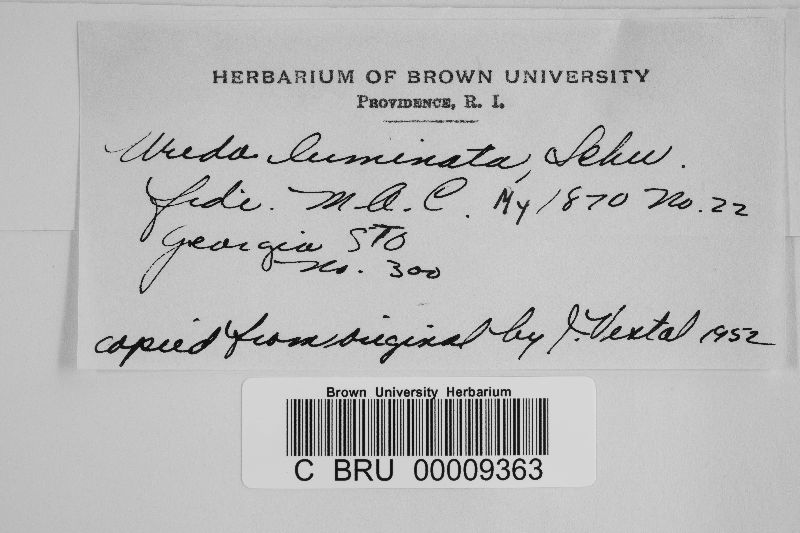 HERBARIUM OF BROWN UNIVERSITY
PROVIDENCE, R. I.
Uredo luminata, Schw.
fide. M.A.C. My 1870 No. 22
Georgia STO
No. 300
copied from original by J. Vestal 1952
Brown University Herbarium
C BRU 00009363